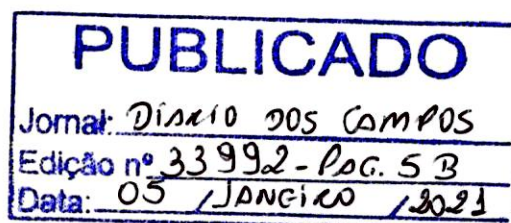 PUBLICADO
Jornal: DIARIO DOS CAMPOS
Edição nº 33992 - PAG. 5 B
Data: 05 / JANEIRO / 2021